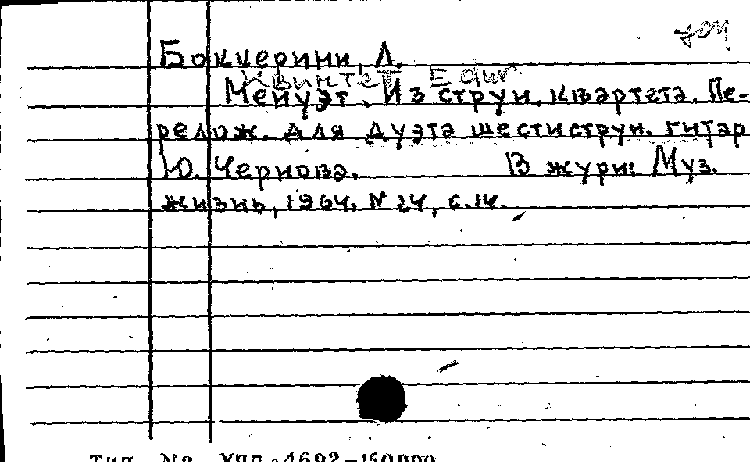 Боккерини, Л.
Квинтет E dur
Менуэт. Из струн. квартета. Пе-
релож. для дуэта шестиструн. гитар
Ю. Чернова. В журн: Муз.
жизнь, 1964, N 24, с.14.